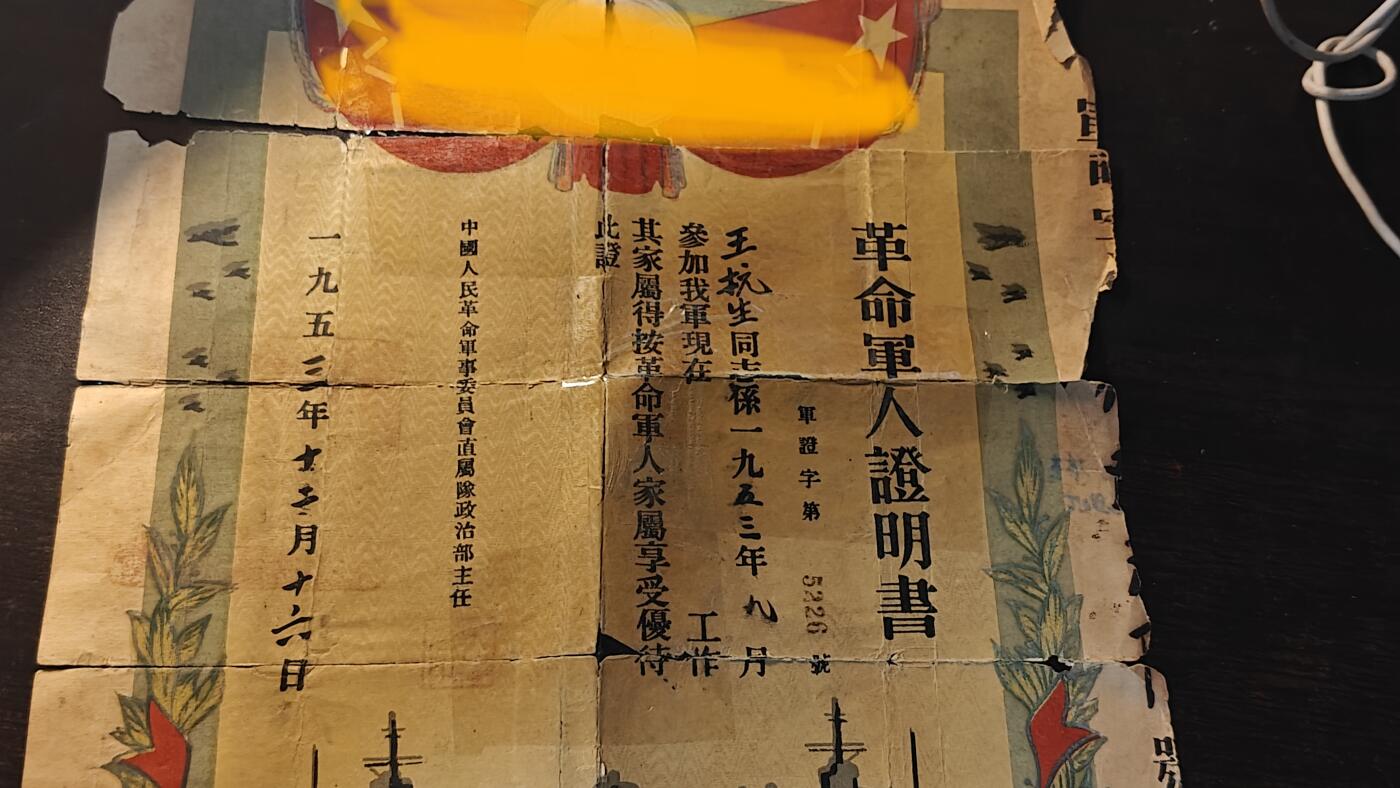 革命軍人證明書
軍證字第 5226 號
王抗生同志係一九五三年九月
參加我軍現在 工作
其家屬得按革命軍人家屬享受優待
此證
中國人民革命軍事委員會直屬隊政治部主任
一九五三年十二月十六日